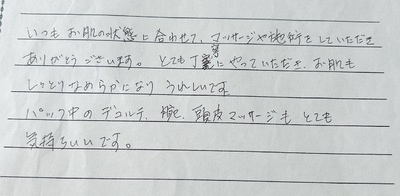 いつもお肌の状態に合わせて、マッサージや施術をしていただき
ありがとうございます。とても丁寧にやっていただき、お肌も
しっとりなめらかになり うれしいです
パック中のデコルテ、腕、頭皮マッサージも とても
気持ちいいです。